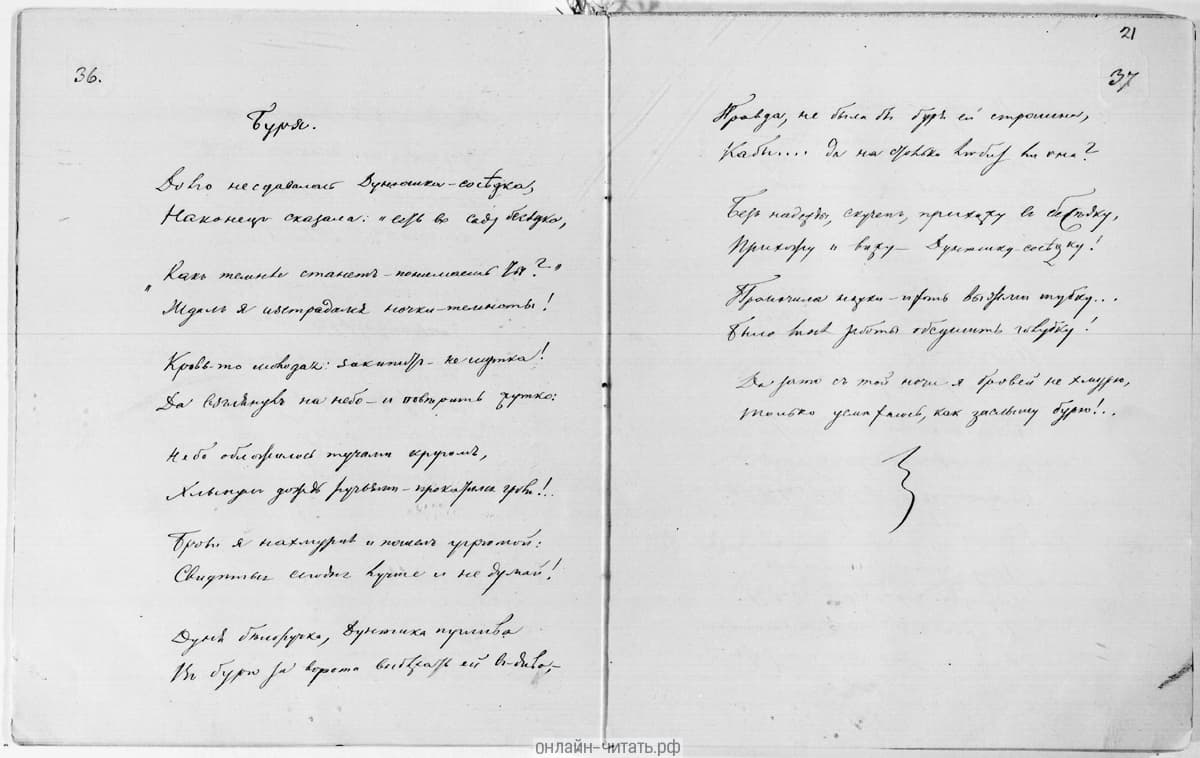 36.
Буря.
Долго не сдавалась Дунюшка-сосѣдка,
Наконецъ сказала: "есть въ саду бесѣдка,
"Какъ темнѣе станетъ – понимаешь ты?"
Ждалъ я исстрадался ночки-темноты!
Кровь-то молодая: закипитъ – не шутка!
Да взглянулъ на небо – и повѣрить жутко:
Небо обложилось тучами кругомъ,
Хлынулъ дождь ручьями – прокатился громъ!..
Брови я нахмурилъ и пошелъ угрюмой:
Свидѣться сегодня лучше и не думай!
Дуня бѣлоручка, Дунюшка пуглива
Въ бурю за ворота выбѣжать ей въ диво,–
21
37
Правда, не была бъ буря ей страшна,
Кабы.... да настолько любитъ ли она?
Безъ надежды, скученъ, прихожу въ бесѣдку,
Прихожу и вижу – Дунюшку-сосѣдку!
Промочила ножки – хоть выжми шубку...
Было мнѣ заботы обсушить голубку!
Да зато съ той ночи я бровей не хмурю,
только усмѣхаюсь, как заслышу бурю!..
онлайн-читать.рф